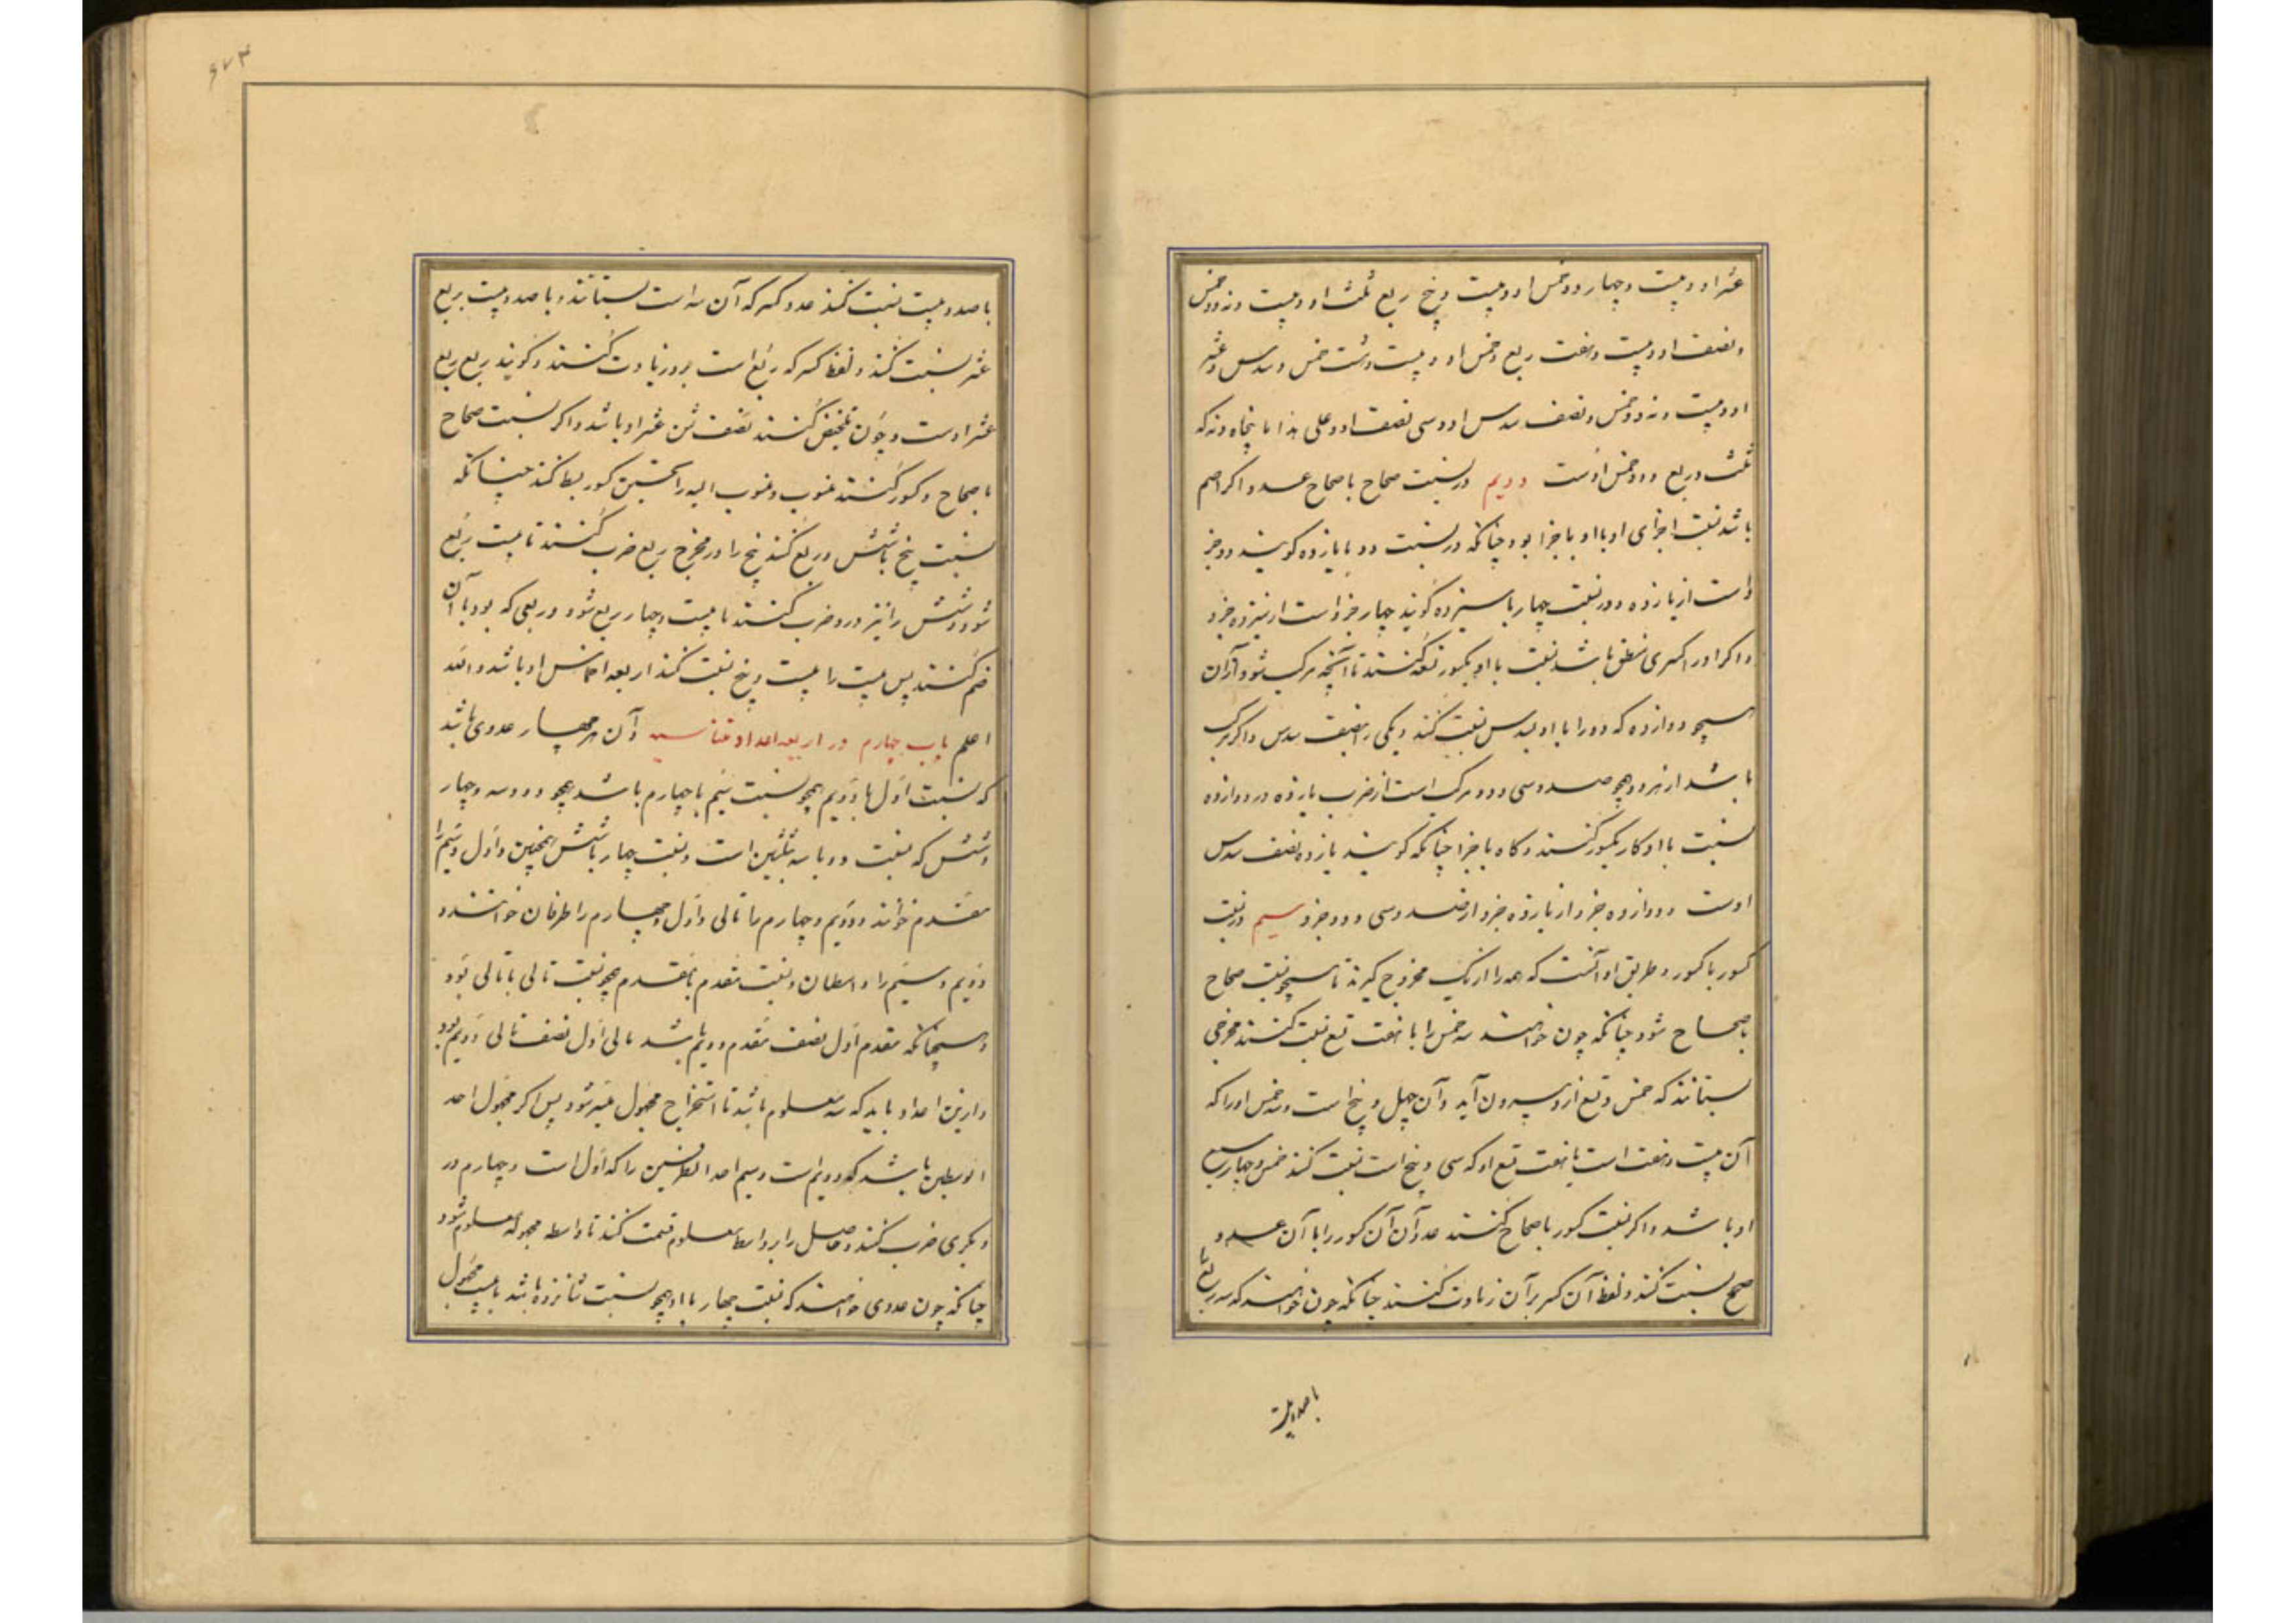 عشر او و بیست و چهار دو خمس او و بیست و پنج ربع ثلث او و بیست و نه دو خمس
و نصف او و بیست و هفت ربع و خمس او و بیست و هشت خمس و سدس و عشر
او و بیست و نه دو خمس و نصف سدس او و سی نصف او و علی هذا تا پنجاه و نه که
ثلث و ربع و دو خمس اوست دویم در نسبت صحاح با صحاح عدد اگر اصم
باشد نسبت اجزای او با او باجزا بود چنانکه در نسبت دو با یازده گویند دو جز
است از یازده و در نسبت چهار با سیزده گویند چهار جزو است از سیزده جزو
و اگر او را کسری منطق باشد نسبت با او بکسور کنند تا آنچه مرکب شود از آن
همچو دوازده که دو را با او بسدس نسبت کنند و یکی را بنصف سدس و اگر مرکب
باشد از هر دو همچو صد و سی و دو مرکب است از ضرب یازده در دوازده
نسبت با او گاه بکسور کنند و گاه باجزا چنانکه گویند یازده نصف سدس
اوست و دوازده جزو از یازده جزو از صد و سی و دو جزو سیم در نسبت
کسور با کسور و طریق او آنست که همه را از یک مخرج گیرند تا همچو نسبت صحاح
با صحاح شود چنانکه چون خواهند سه خمس را با هفت تسع نسبت کنند مخرجی
بستانند که خمس و تسع ازو بیرون آید و آن چهل و پنج است و سه خمس او را که
آن بیست و هفت است با هفت تسع او که سی و پنج است نسبت کنند خمس و چهار سبع
او باشد و اگر نسبت کسور با صحاح کنند عدد آن کسور را با آن عدد
صحیح نسبت کنند و لفظ آن کسر بر آن زیادت کنند چنانکه چون خواهند که سه ربع را
با صد و بیست
با صد و بیست نسبت کنند عدد کسر که آن سه است بستانند و با صد و بیست بربع
عشر نسبت کنند و لفظ کسر که ربع است برو زیادت کنند و گویند ربع ربع
عشر اوست و چون تلخیص کنند نصف ثمن عشر او باشد و اگر نسبت صحاح
با صحاح و کسور کنند منسوب و منسوب الیه را بجنس کسور بسط کنند چنانکه
نسبت پنج با شش و ربع کنند پنج را در مخرج ربع ضرب کنند تا بیست ربع
شود و شش را نیز درو ضرب کنند تا بیست و چهار ربع شود و ربعی که بود با آن
ضم کنند پس بیست را با بیست و پنج نسبت کنند اربعه اخماس او باشد و الله
اعلم باب چهارم در اربعه اعداد متناسبه و آن هر چهار عددی باشد
که نسبت اول با دویم همچو نسبت سیم با چهارم باشد همچو دو و سه و چهار
و شش که نسبت دو با سه ثلثین است و نسبت چهار با شش همچنین و اول و سیم را
مقدم خوانند و دویم و چهارم را تالی و اول و چهارم را طرفان خوانند و
دویم و سیم را واسطان و نسبت مقدم با مقدم همچو نسبت تالی با تالی بود
و همچنانکه مقدم اول نصف مقدم دویم باشد تالی اول نصف تالی دویم بود
و ازین اعداد باید که سه معلوم باشد تا استخراج مجهول میسر شود پس اگر مجهول احد
الوسطین باشد که دویم است و سیم احد الطرفین را که اول است و چهارم در
دیگری ضرب کنند و حاصل را بر واسطه معلوم قسمت کنند تا واسطه مجهوله معلوم شود
چنانکه چون عددی خواهند که نسبت چهار با او همچو نسبت شانزده باشد با بیست مجهول